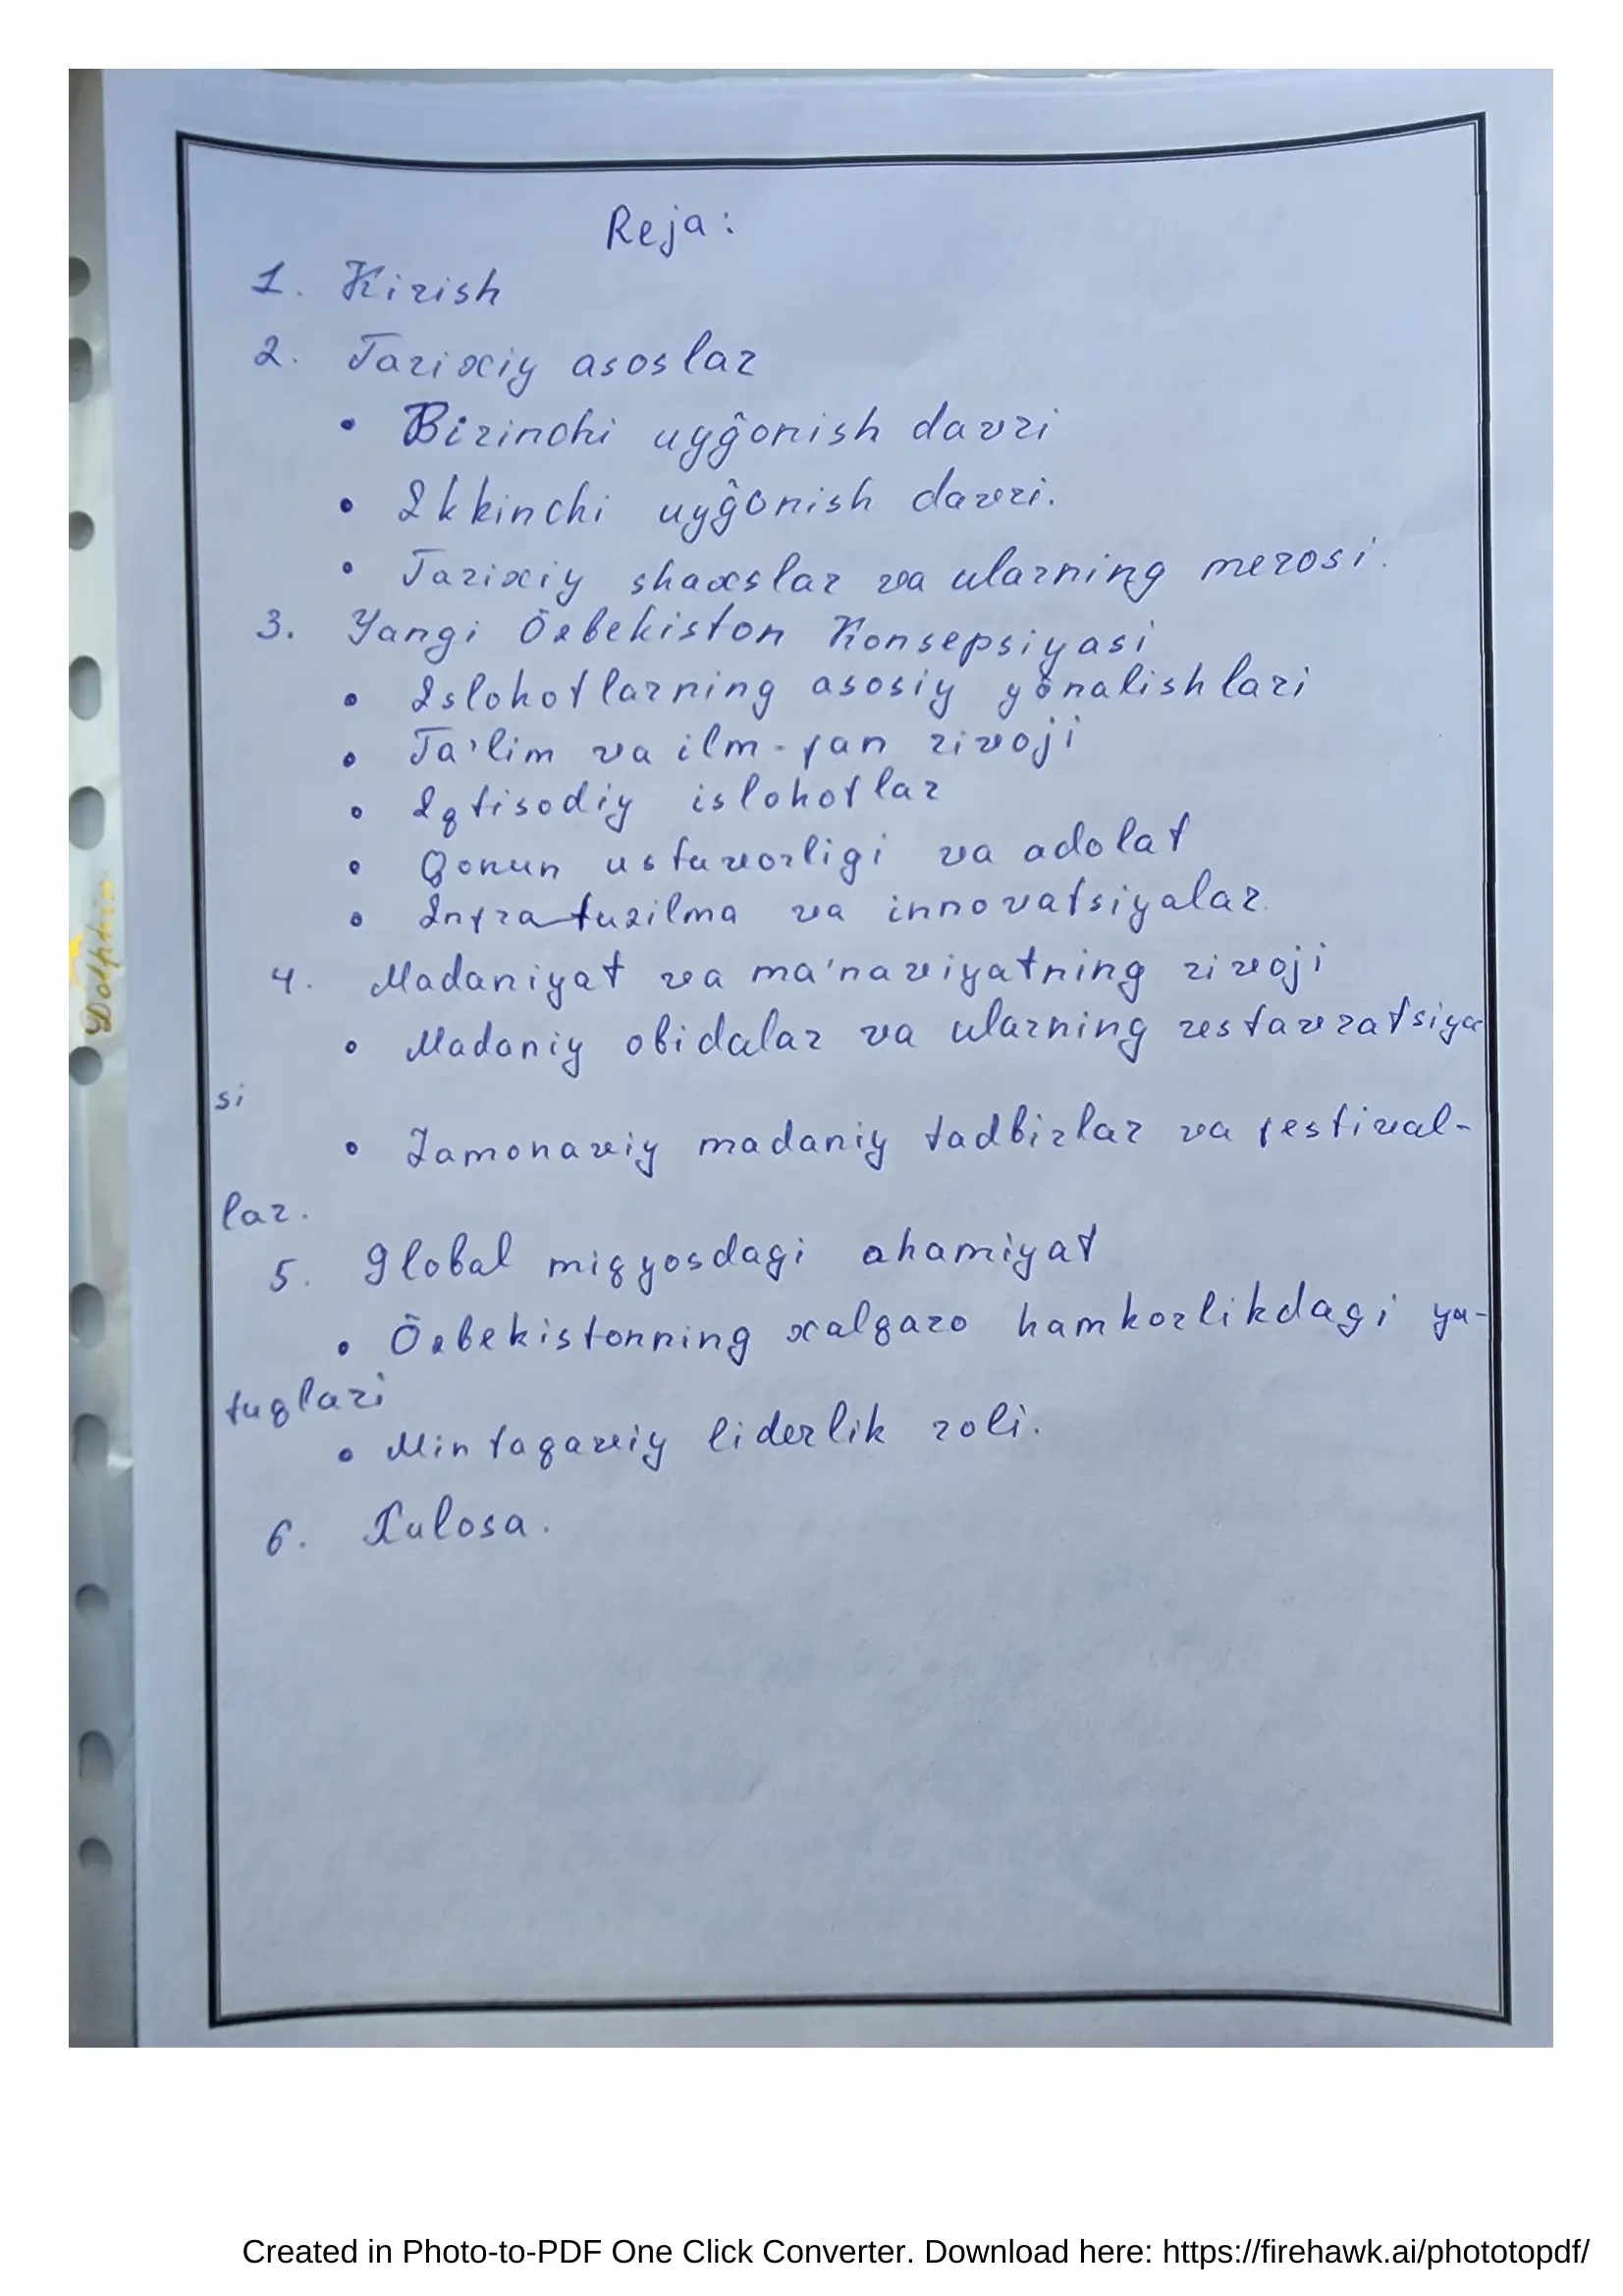 Reja:
1. Kirish
2. Tarixiy asoslar
• Birinchi uyĝonish davri
• Ikkinchi uyĝonish davri.
• Tarixiy shaxslar va ularning merosi.
3. Yangi Õzbekiston Konsepsiyasi
• Islohotlarning asosiy yõnalishlari
• Ta'lim va ilm-fan rivoji
• Iqtisodiy islohotlar
• Qonun ustuvorligi va adolat
• Infratuzilma va innovatsiyalar.
4. Madaniyat va ma'naviyatning rivoji
• Madaniy obidalar va ularning restavratsiya
si
• Zamonaviy madaniy tadbirlar va festival-
lar.
5. Global miqyosdagi ahamiyat
• Õzbekistonning xalqaro hamkorlikdagi yu-
tuqlari
• Mintaqaviy liderlik roli.
6. Xulosa.
Dolphin
Created in Photo-to-PDF One Click Converter. Download here: https://firehawk.ai/phototopdf/